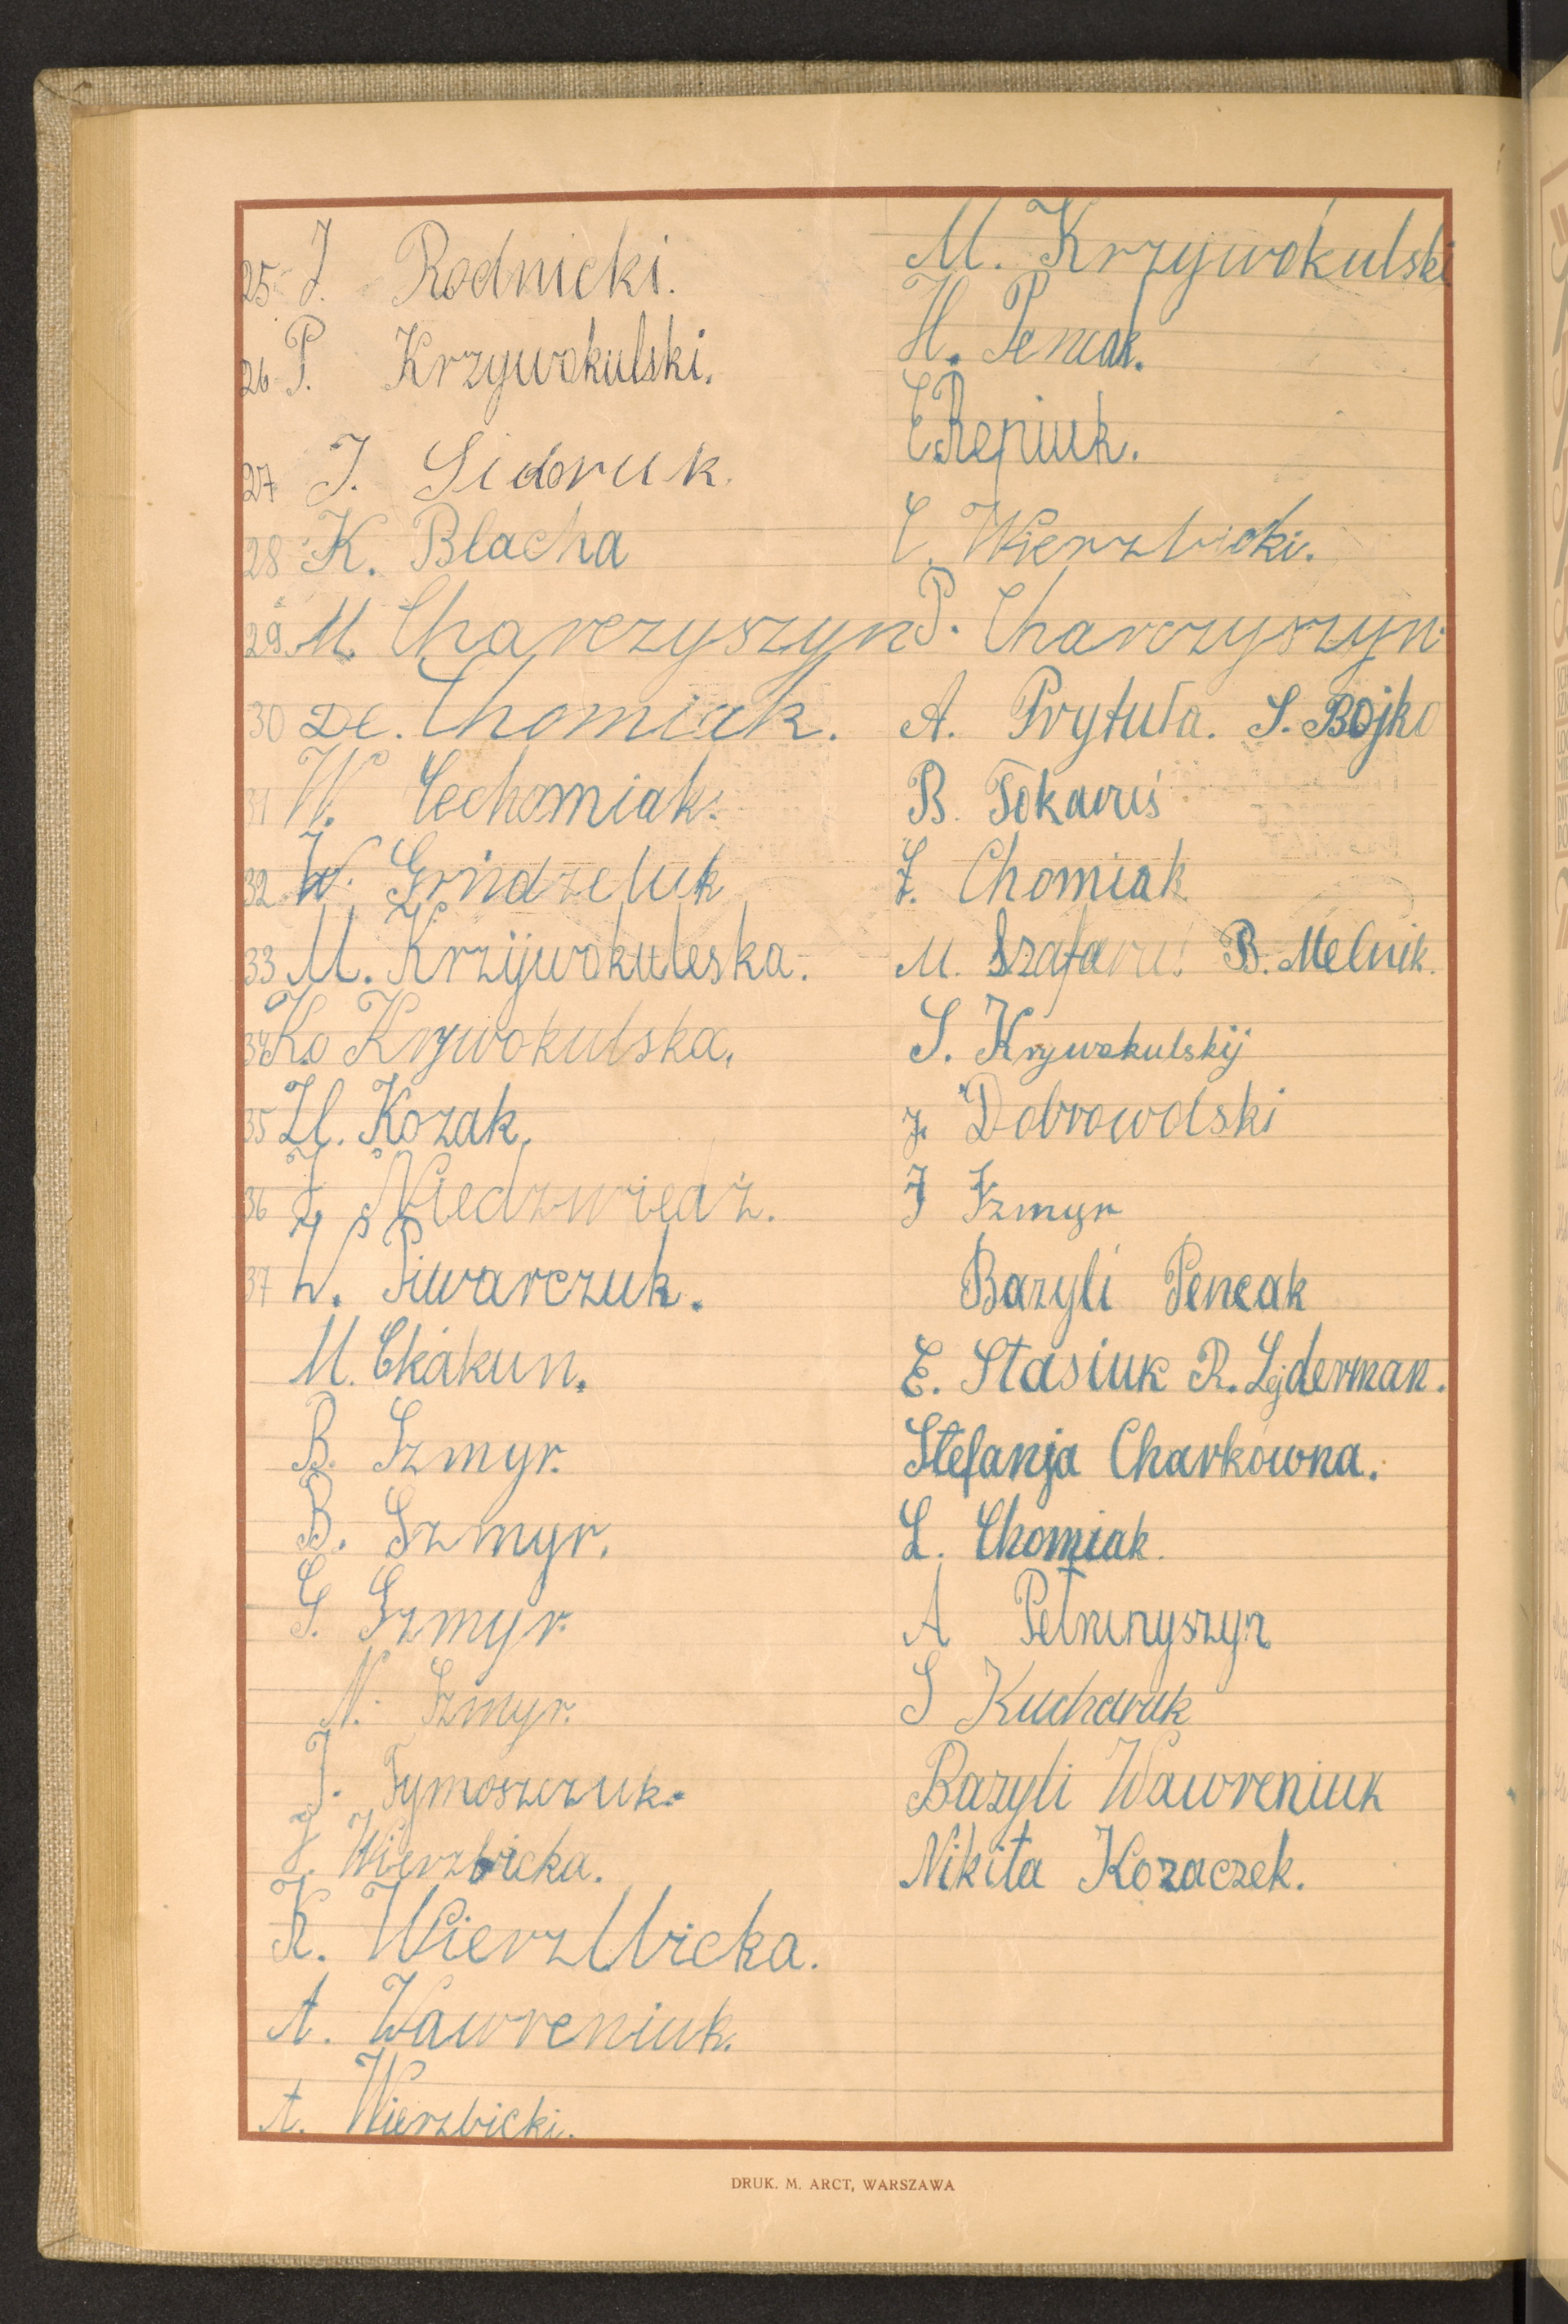 25 J. Rodnicki.
26 P. Krzywokulski.
27 J. Sidoruk.
28 K. Blacha
29. M. Charczyszyn
30 De. Chomiak.
31 W. Cechomiak.
32 W. Grindzeluk
33 M. Krzijwokuleska.
34 Ko Krywokulska,
35 H. Kozak.
36 J. Niedzwiedź.
37 W. Piwarczuk.
M. Ckakun.
B. Szmyr.
B. Szmyr.
S. Szmyr.
N. Szmyr.
J. Tymoszczuk.
J. Wierzbicka.
K. Wierzbicka.
A. Wawreniuk.
A. Wierzbicki.
M. Krzywokulski
H. Pencak.
E Repiuk.
C. Wierzbicki.
P. Charczyszyn.
A. Prytuła. S. Bojko
B. Tokaruś
J. Chomiak
M. B. Melnik.
S. Krywokulskij
J. Dobrowolski
J Szmyr
Bazyli Pencak
E. Stasiuk R. Lejderman.
Stefanja Charkowna.
L. Chomiak.
A
S Kucharuk
Bazyli Wawreniuk
Nikita Kozaczek.
DRUK. M. ARCT, WARSZAWA